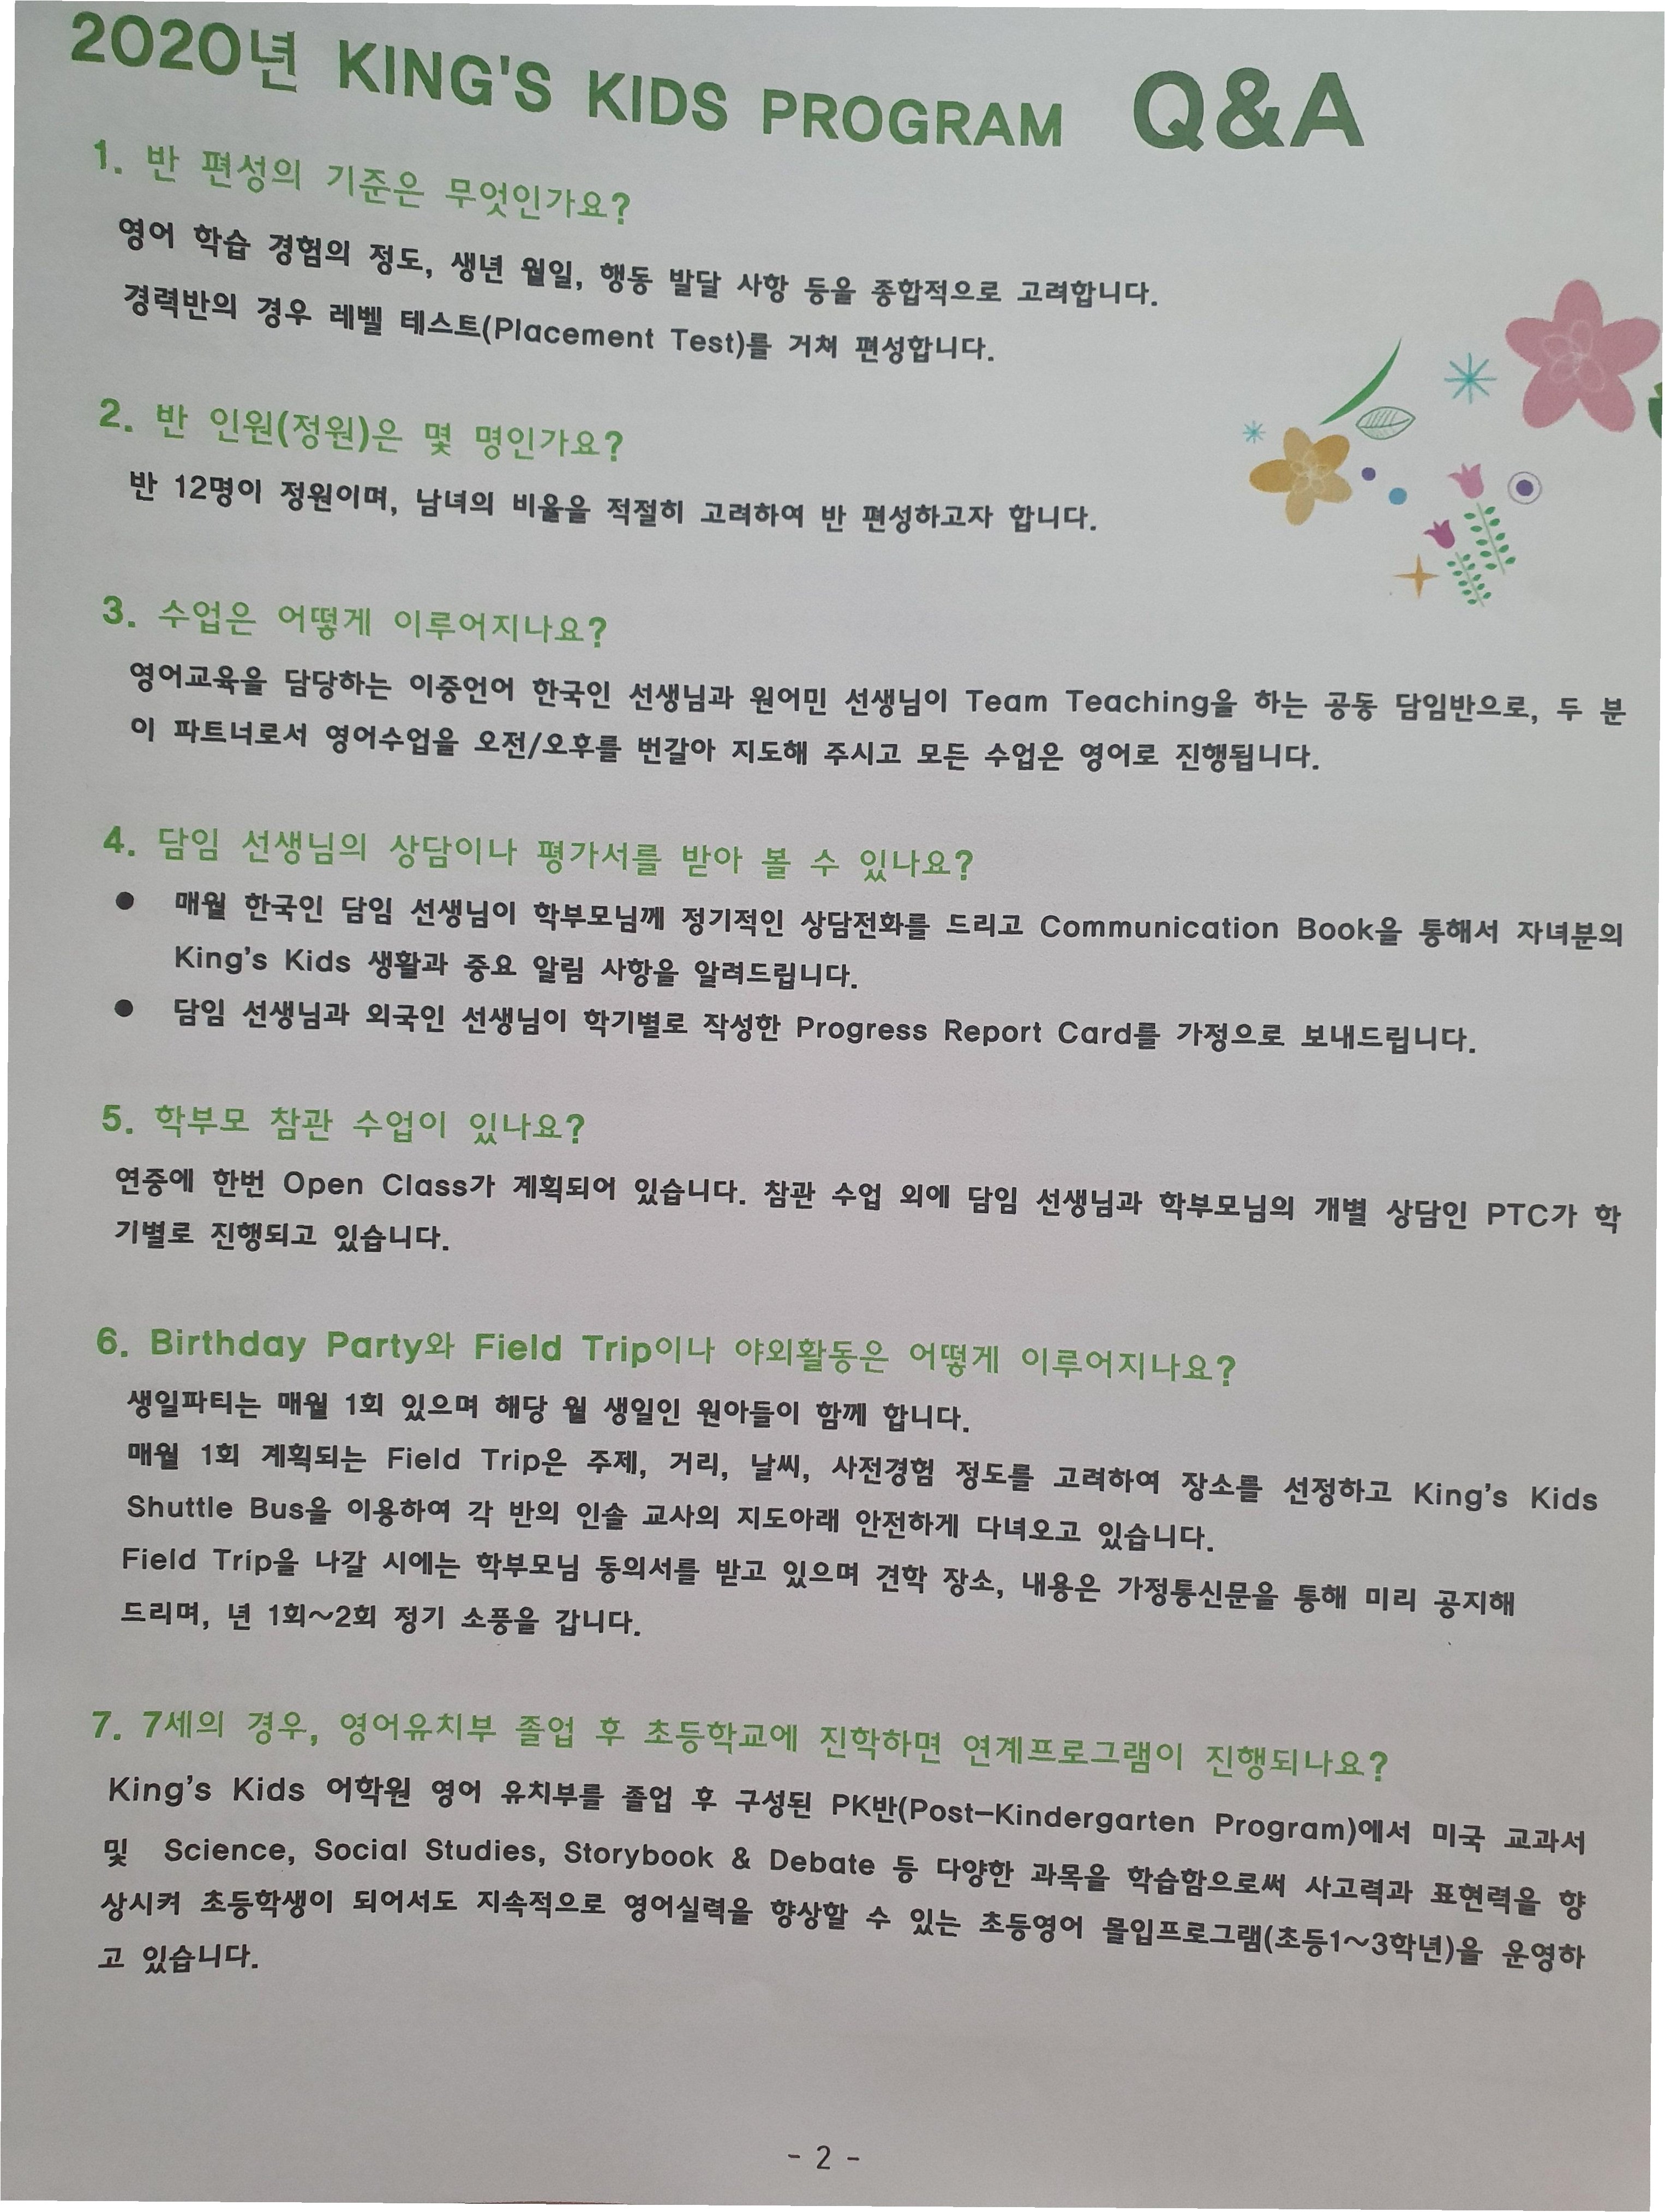 2020년 KING'S KIDS PROGRAM Q&A
1. 반 편성의 기준은 무엇인가요?
영어 학습 경험의 정도, 생년 월일, 행동 발달 사항 등을 종합적으로 고려합니다.
경력반의 경우 레벨 테스트(Placement Test)를 거쳐 편성합니다.
2. 반 인원(정원)은 몇 명인가요?
반 12명이 정원이며, 남녀의 비율을 적절히 고려하여 반 편성하고자 합니다.
3. 수업은 어떻게 이루어지나요?
영어교육을 담당하는 이중언어 한국인 선생님과 원어민 선생님이 Team Teaching을 하는 공동 담임반으로, 두 분
이 파트너로서 영어수업을 오전/오후를 번갈아 지도해 주시고 모든 수업은 영어로 진행됩니다.
4. 담임 선생님의 상담이나 평가서를 받아 볼 수 있나요?
● 매월 한국인 담임 선생님이 학부모님께 정기적인 상담전화를 드리고 Communication Book을 통해서 자녀분의
King's Kids 생활과 중요 알림 사항을 알려드립니다.
● 담임 선생님과 외국인 선생님이 학기별로 작성한 Progress Report Card를 가정으로 보내드립니다.
5. 학부모 참관 수업이 있나요?
연중에 한번 Open Class가 계획되어 있습니다. 참관 수업 외에 담임 선생님과 학부모님의 개별 상담인 PTC가 학
기별로 진행되고 있습니다.
6. Birthday Party와 Field Trip이나 야외활동은 어떻게 이루어지나요?
생일파티는 매월 1회 있으며 해당 월 생일인 원아들이 함께 합니다.
매월 1회 계획되는 Field Trip은 주제, 거리, 날씨, 사전경험 정도를 고려하여 장소를 선정하고 King's Kids
Shuttle Bus을 이용하여 각 반의 인솔 교사의 지도아래 안전하게 다녀오고 있습니다.
Field Trip을 나갈 시에는 학부모님 동의서를 받고 있으며 견학 장소, 내용은 가정통신문을 통해 미리 공지해
드리며, 년 1회~2회 정기 소풍을 갑니다.
7. 7세의 경우, 영어유치부 졸업 후 초등학교에 진학하면 연계프로그램이 진행되나요?
King's Kids 어학원 영어 유치부를 졸업 후 구성된 PK반(Post-Kindergarten Program)에서 미국 교과서
및 Science, Social Studies, Storybook & Debate 등 다양한 과목을 학습함으로써 사고력과 표현력을 향
상시켜 초등학생이 되어서도 지속적으로 영어실력을 향상할 수 있는 초등영어 몰입프로그램(초등1~3학년)을 운영하
고 있습니다.
- 2 -